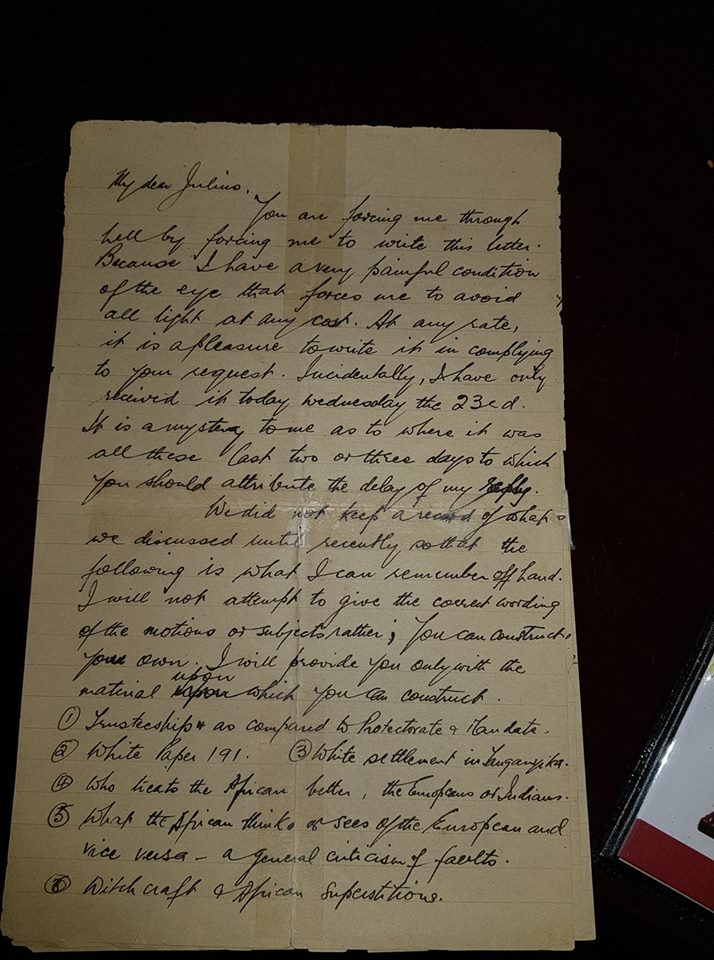 My dear Julius,
You are forcing me through
hell by forcing me to write this letter.
Because I have a very painful condition
of the eye that forces me to avoid
all light at any cost. At any rate,
it is a pleasure to write it in complying
to your request. Incidentally, I have only
received it today Wednesday the 23rd.
It is a mystery to me as to where it was
all these last two or three days to which
you should attribute the delay of my reply.
We did not keep a record of what
we discussed until recently so that the
following is what I can remember off hand.
I will not attempt to give the correct wording
of the motions or subjects rather; you can construct
your own. I will provide you only with the
material upon which you can construct.
① Trusteeship as compared to Protectorate & Mandate.
② White Paper 191. ③ White settlement in Tanganyika.
④ Who treats the African better, the Europeans or Indians.
⑤ What the African thinks or sees of the European and
vice versa – a general criticism of faults.
⑥ Witchcraft & African Superstitions.